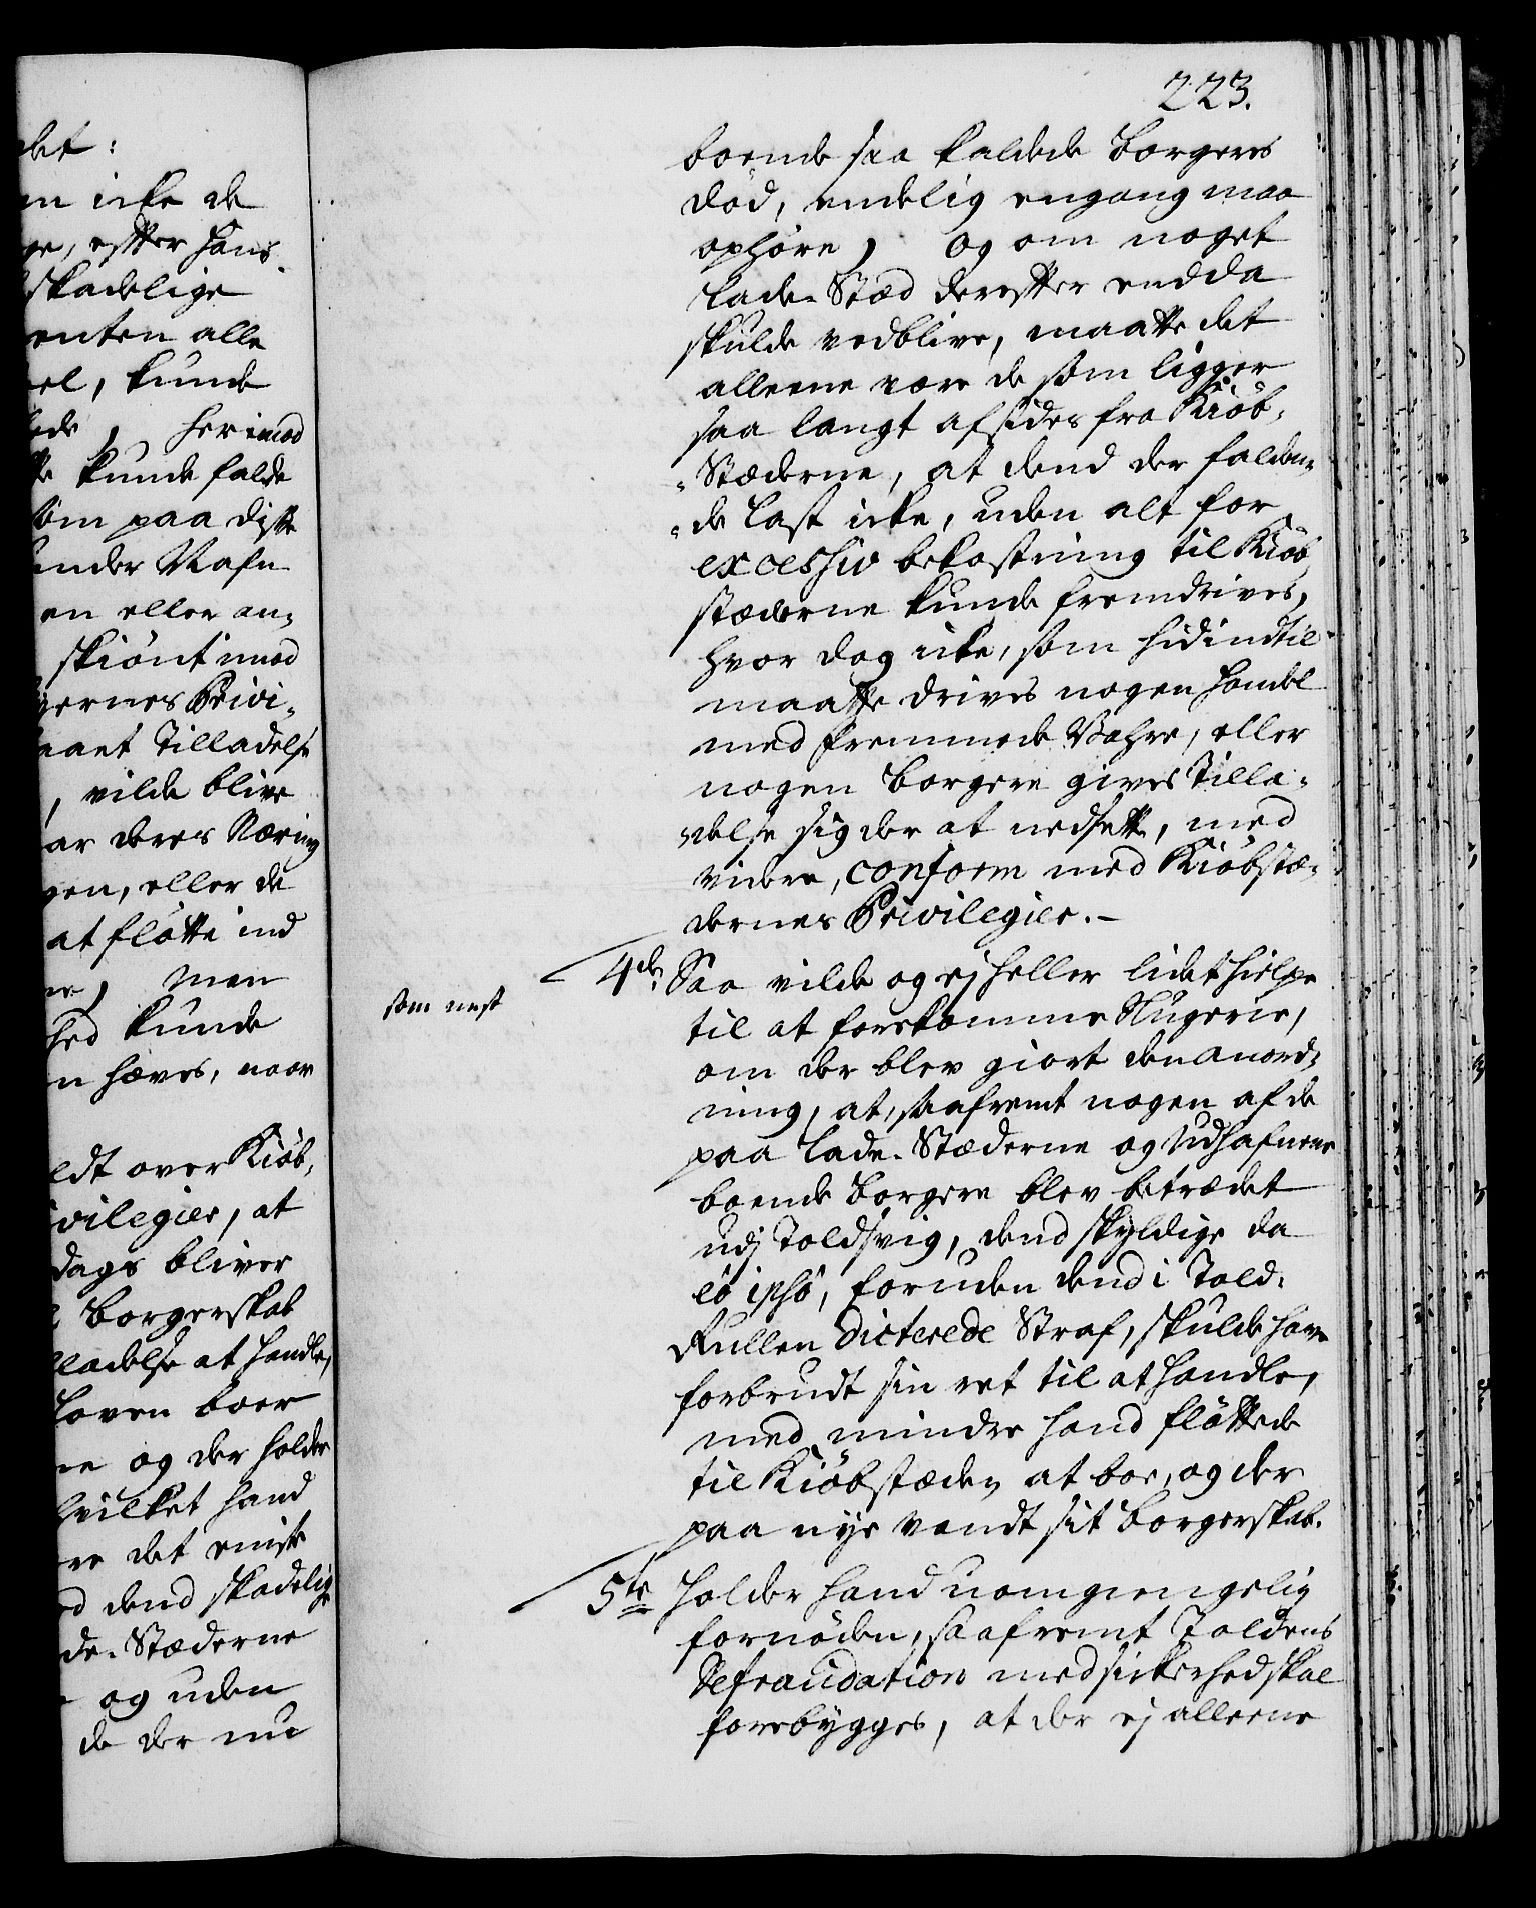 det:
en icke de
ge, efter hans
skadelige
enten alle
el, kunde
ede, herimod
te kunde falde
som paa diste
under Nafn
en eller an-
skiønt imod
gernes Privi-
aaet Tilladelse
, vilde blive
ar deres Næring
gen, eller de
at fløtte ind
er, men
hed kunde
n hæves, naar
eldt over Kiøb-
ivilegier, at
dags bliver
borgerskab
ladelse at handle,
Loven boer
ne og der holder
hvilket hand
re det eniste
ed dend skadelig
de-Stæderne
og uden
de der nu
223.
boende saa kaldede borgeres
død, endelig engang maa
ophøre, og om noget
lade-Stæd derefter endda
skulde vedblive, maatte det
alleene være de som ligger
saa langt afsides fra Kiøb-
-Stæderne, at dend der falden-
-de last icke, uden alt for
excessiv bekostning til Kiøb
stæderne kunde fremdrives,
hvor dog icke, som hidindtil
maatte drives nogen handel
med fremmede Vahre, eller
nogen borgere gives Tilla-
-delse sig der at nedsette, med
videre, conform med Kiøbstæ-
dernes Privilegier.-
4de Saa vilde og ej heller lidet hielpe
som nest
til at forekomme Slugerie,
om der blev giort den anord-
ning, at, saafremt nogen af de
paa lade-Stæderne og Udhafnene
boende borgere blev betrædet
udj Toldsvig, dend skyldige da
eo ipso, foruden dend i Told-
Rullen dicterede Straf, skulde have
forbrudt sin ret til at handle,
med mindre hand fløttede
til Kiøbstæden at boe, og der
paa nye vandt sit borgerskab.
5te holder hand uomgiengelig
fornøden, saafremt Toldens
Defraudation med sikkerhed skal
forebygges, at der ej alleene